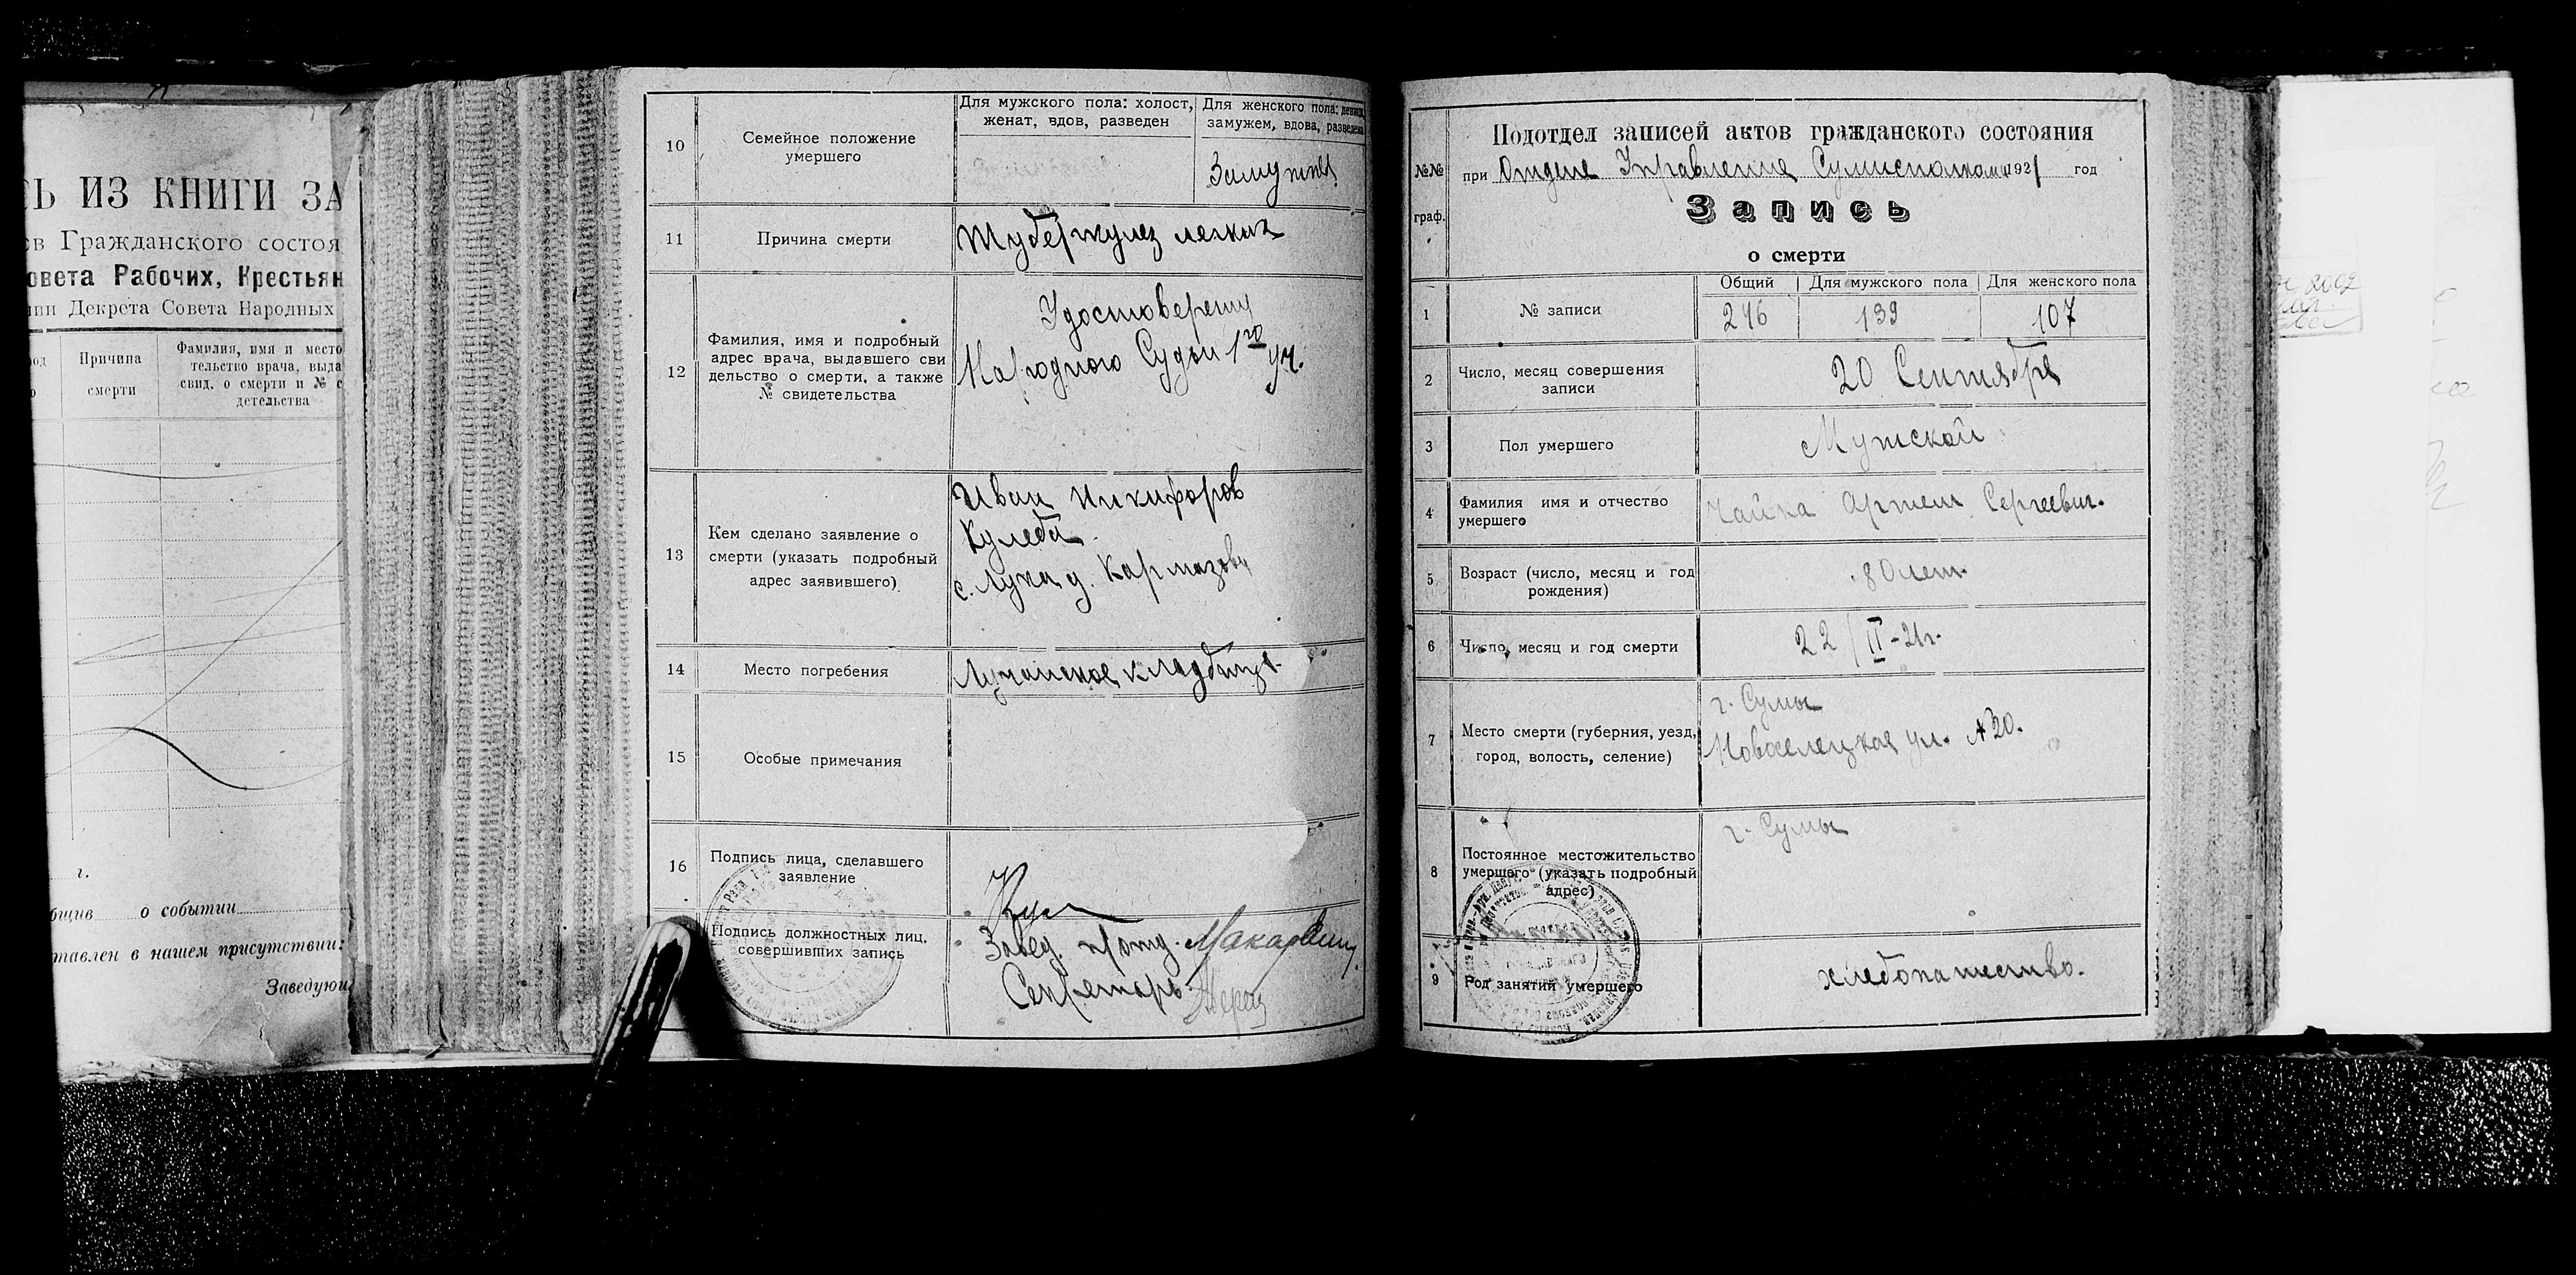 Ь ИЗ КНИГИ ЗА
ов Гражданского состоя
овета Рабочих, Крестьян
ии Декрета Совета Народных
Причина
смерти
Фамилия, имя и место
тельство врача, выда
свид. о смерти и № с
детельства
г.
бщив о событии
тавлен в нашем присутствии:
Заведующ
10
Семейное положение
умершего
Для мужского пола: холост,
женат, вдов, разведен
Для женского пола: девица,
замужем, вдова, разведена
Замужняя
11
Причина смерти
Туберкулез легких
12
Фамилия, имя и подробный
адрес врача, выдавшего сви
дельство о смерти, а также
№ свидетельства
Удостоверение
Народного Судьи 1го уч.
13
Кем сделано заявление о
смерти (указать подробный
адрес заявившего)
Иван Никифоров
Кулеба
с. Лука д. Кармазова
14
Место погребения
Лучанское кладбище
15
Особые примечания
16
Подпись лица, сделавшего
заявление
Подпись должностных лиц,
совершивших запись
Завед. п/отд.
Секретарь
Подотдел записей актов гражданского состояния
при Отделе Управления Сумисполкома 1921 год
№№
граф.
Запись
о смерти
1
№ записи
Общий
Для мужского пола
Для женского пола
246
139
107
2
Число, месяц совершения
записи
20 Сентября
3
Пол умершего
Мужской
4
Фамилия имя и отчество
умершего
Чайка Артем Сергеевич.
5
Возраст (число, месяц и год
рождения)
80 лет.
6
Число, месяц и год смерти
22/II-21г.
7
Место смерти (губерния, уезд,
город, волость, селение)
г. Сумы
Новоселецкая ул. № 20.
8
Постоянное местожительство
умершего (указать подробный
адрес)
г. Сумы
9
Род занятий умершего
хлебопашество.